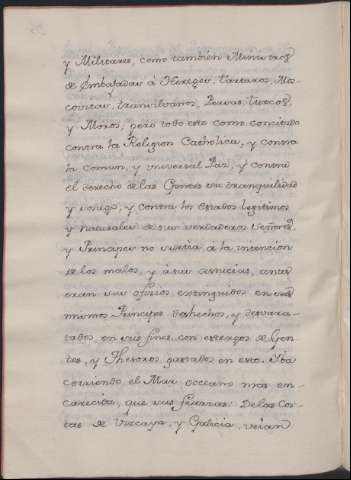 y Militares, como tambien Ministros
de Embaxadas à Hereges, tartaros, Mos-
covitas, transilvanos, Persas, turcos,
y Moros; pero todo esto como concitado
contra la Religion Catholica, y contra
la comun, y universal Paz, y contra
el derecho de las Gentes su tranquilidad
y sosiego, y contra los estados legitimos
y naturales de sus verdaderos Señores,
y Principes no surtia à la intencion
de los malos, y à sus astucias, antes
eran sus oficios extinguidos en
mismos Principes deshechos, y desvara-
tados en sus fines con estragos de Gen-
tes, y Thesoros gastados en esto. Iba
corriendo el Mar occeano mas en-
carecida, que sus fuerzas: De las Cos-
tas de Vizcaya, y Galicia, veian